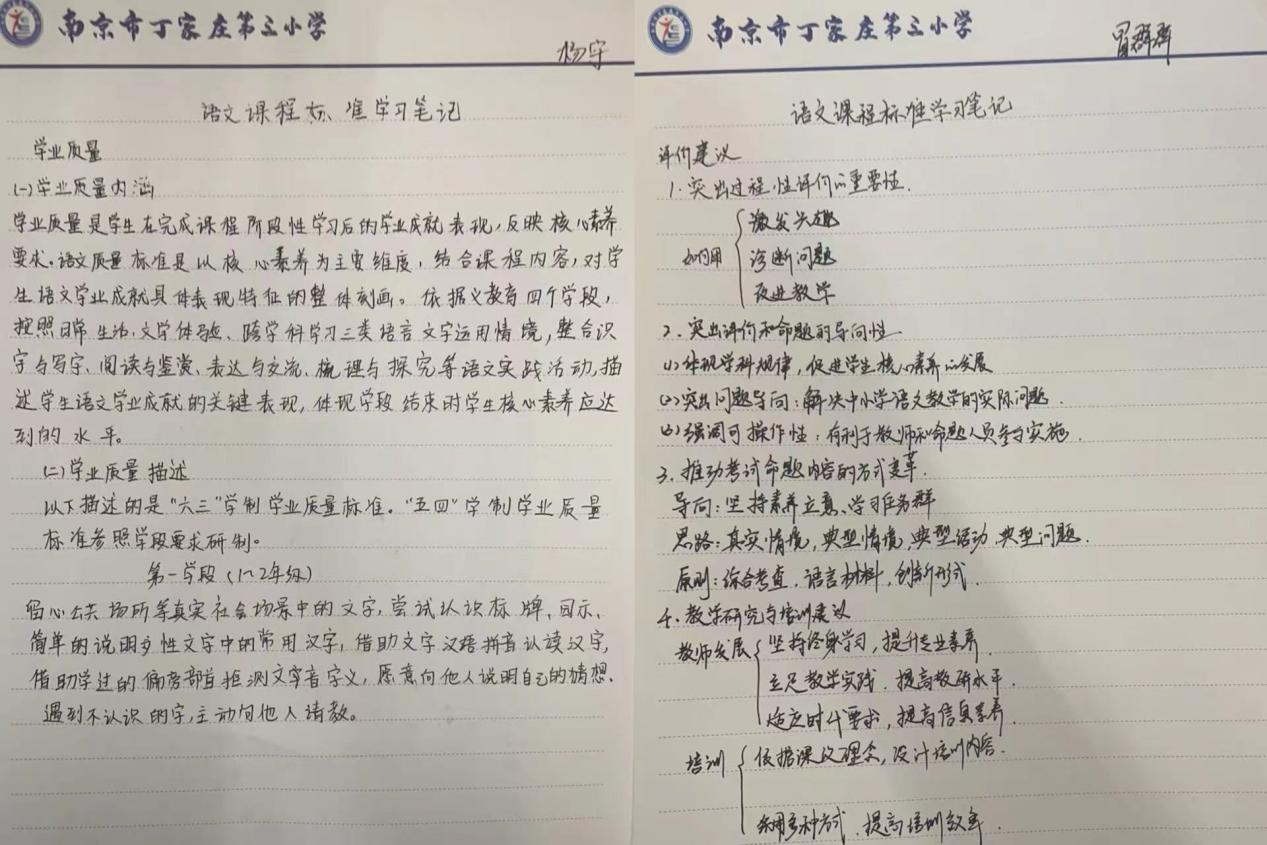 南京市丁家庄第三小学
杨宇
语文课程标准学习笔记
学业质量
(一)学业质量内涵
学业质量是学生在完成课程阶段性学习后的学业成就表现,反映核心素养
要求。语文质量标准是以核心素养为主要维度,结合课程内容,对学
生语文学业成就具体表现特征的整体刻画。依据义教育四个学段,
按照日常生活、文学体验、跨学科学习三类语言文字运用情境,整合识
字与写字、阅读与鉴赏、表达与交流、梳理与探究等语文实践活动,描
述学生语文学业成就的关键表现,体现学段结束时学生核心素养应达
到的水平。
(二)学业质量描述
以下描述的是“六三”学制学业质量标准。“五四”学制学业质量
标准参照学段要求研制。
第一学段(1~2年级)
留心公共场所等真实社会场景中的文字,尝试认识标牌、图示、
简单的说明性文字中的常用汉字,借助文字汉语拼音认读汉字,
借助学过的偏旁部首推测文字音字义,愿意向他人说明自己的猜想.
遇到不认识的字,主动向他人请教。
南京市丁家庄第三小学
冒群群
语文课程标准学习笔记
评价建议
1.突出过程性评价的重要性.
激发兴趣
如何用 诊断问题
改进教学
2.突出评价和命题的导向性
(1)体现学科规律,促进学生核心素养的发展
(2)突出问题导向:解决中小学语文教学的实际问题.
(3)强调可操作性:有利于教师和命题人员参与实施.
3.推动考试命题内容的方式变革.
导向:坚持素养立意、学习任务群
思路:真实情境,典型情境,典型活动,典型问题.
原则:综合考查,语言材料,创新形式.
4.教学研究与培训建议
教师发展 坚持终身学习,提升专业素养.
立足教学实践,提高教研水平.
适应时代要求,提高信息素养.
培训 依据课义理念,设计培训内容.
采用多种方式,提高培训效率.